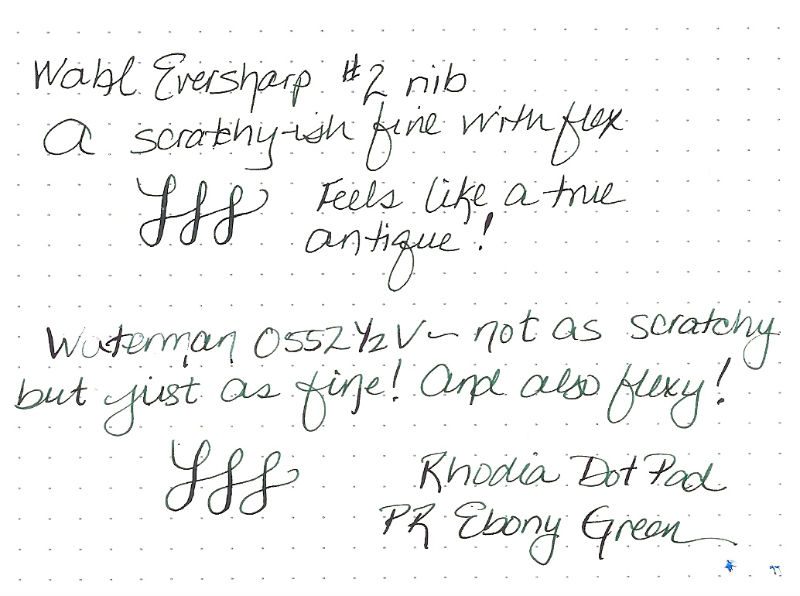 Wahl Eversharp #2 nib
A scratchy-ish fine with flex
Feels like a true
antique!
Waterman 0552½V – not as scratchy
but just as fine! And also flexy!
Rhodia Dot Pad
PR Ebony Green